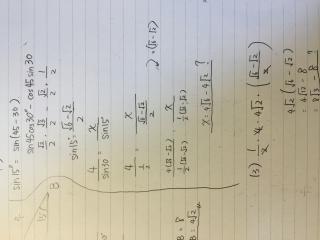 sin15° = sin(45-30)
sin45cos30° - cos45sin30
√2/2 · √3/2 - √2/2 · 1/2
sin15° = (√6-√2)/2
4/sin30 = x/sin15
4/(1/2) = x/((√6-√2)/2)
×(√6-√2)
4(√6-√2)/(1/2(√6-√2)) = x/(1/2(√6-√2))
x = 4√6-4√2 ?
B
B = 8
B = 4√2
(3) 1/2 · 4 · 4√2 · ((√6-√2)/2)
4√2(√6-√2)
= 4√12 - 8
= 8√3 - 8